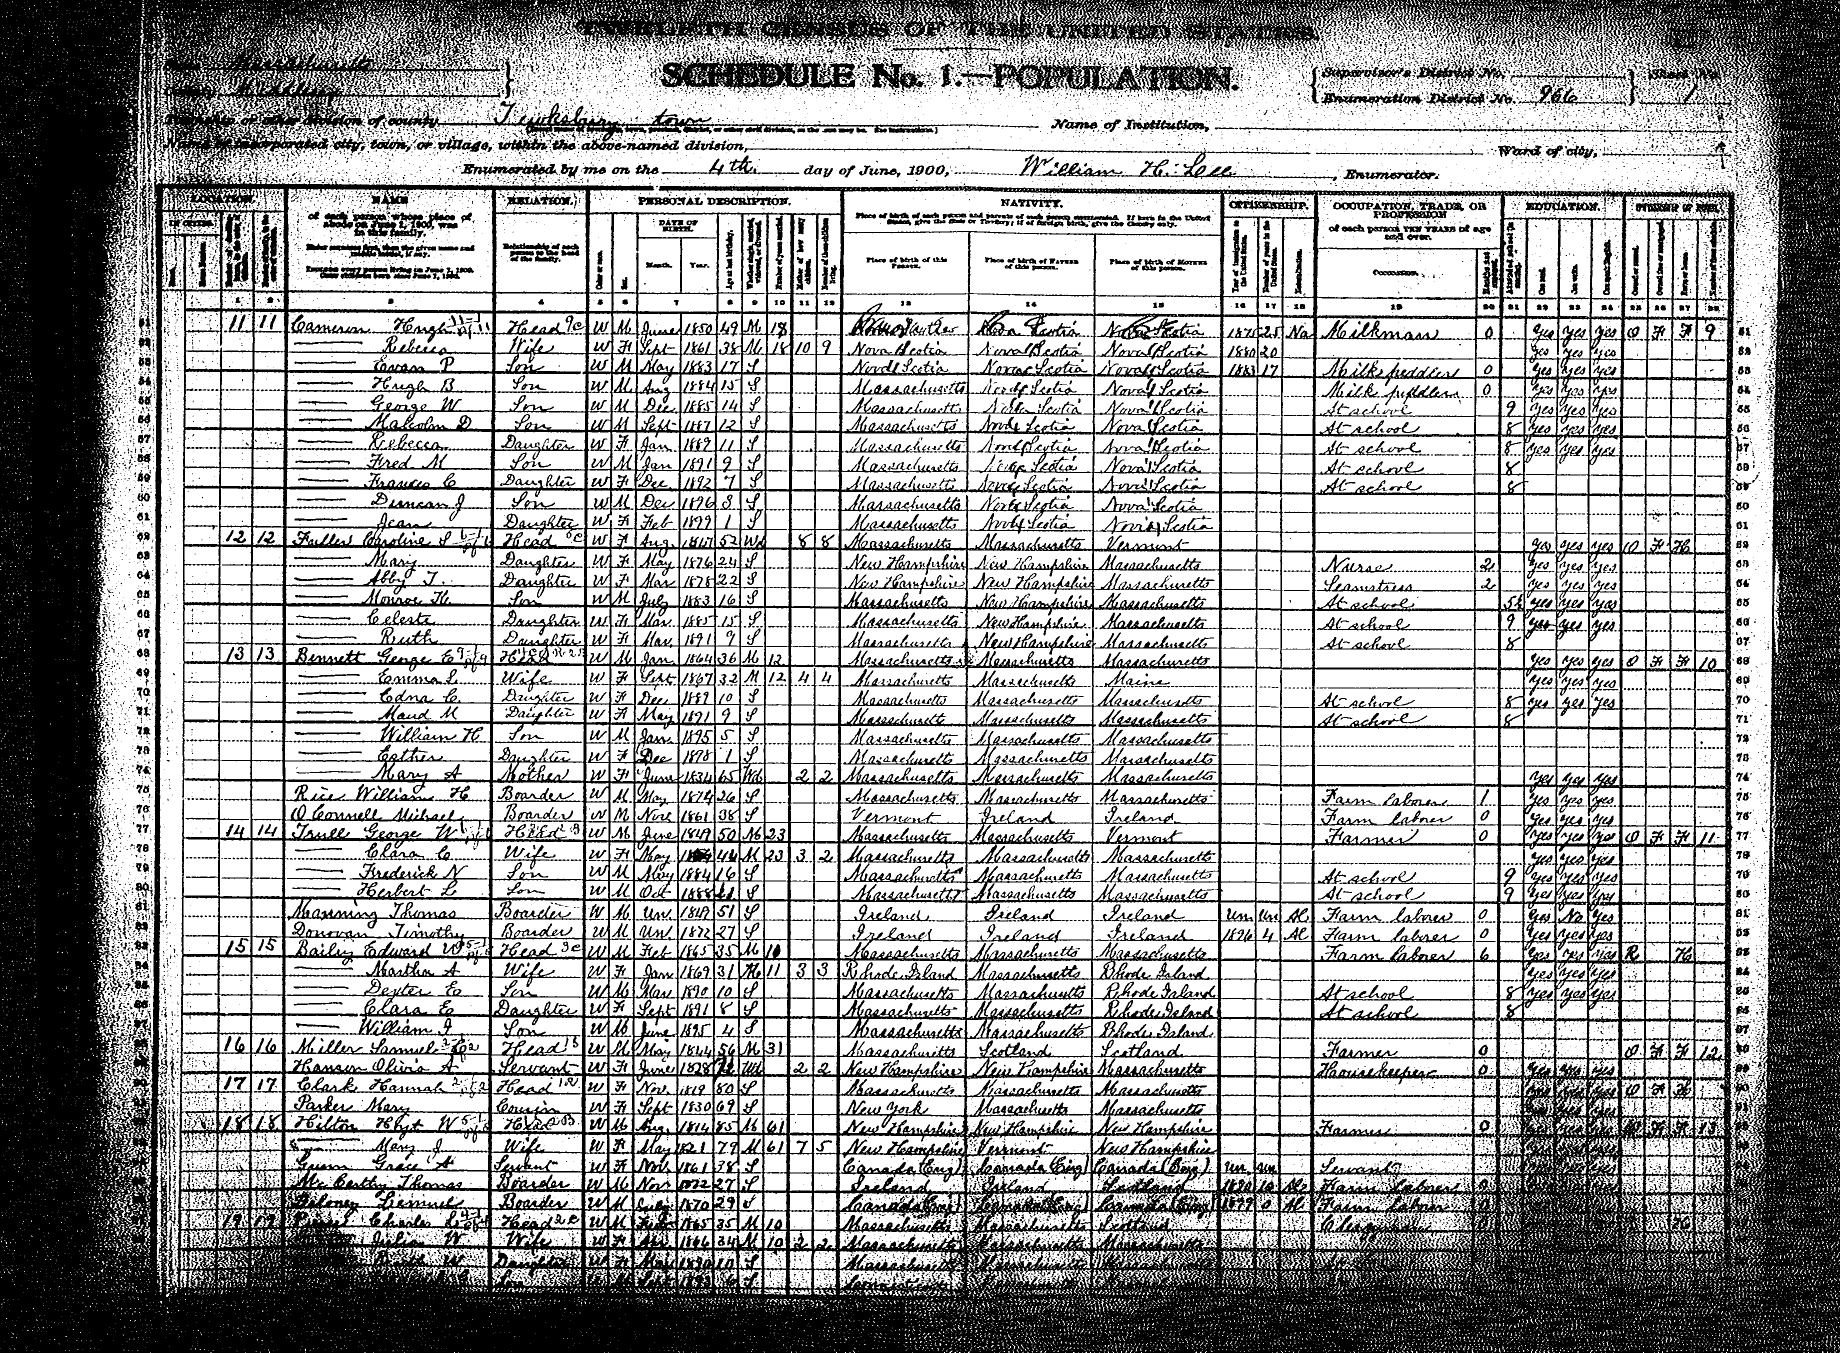 TWELFTH CENSUS OF THE UNITED STATES.
SCHEDULE No. 1.—POPULATION.
Massachusetts
Middlesex
Supervisor's District No.
Sheet No.
Enumeration District No. 966
1
Township or other division of county Tewksbury town
Name of Institution,
Name of incorporated city, town, or village, within the above-named division,
Ward of city,
Enumerated by me on the 4th day of June, 1900, William H. Lee, Enumerator.
LOCATION. NAME RELATION. PERSONAL DESCRIPTION. NATIVITY. CITIZENSHIP. OCCUPATION, TRADE, OR PROFESSION EDUCATION. OWNERSHIP OF HOME.
of each person whose place of abode on June 1, 1900, was in this family.
Relationship of each person to the head of the family.
DATE OF BIRTH.
Month. Year.
Place of birth of this Person. Place of birth of Father of this person. Place of birth of Mother of this person.
of each person TEN YEARS of age and over.
Occupation.
1 2 3 4 5 6 7 8 9 10 11 12 13 14 15 16 17 18 19 20 21 22 23 24 25 26 27 28
51 11 11 Cameron Hugh Head W M June 1850 49 M 18 Nova Scotia Nova Scotia 1875 25 Na Milkman 0 Yes Yes Yes O F F 9 51
52 Rebecca Wife W F Sept 1861 38 M 18 10 9 Nova Scotia Nova Scotia Nova Scotia 1880 20 Yes Yes Yes 52
53 Evan P Son W M May 1883 17 S Nova Scotia Nova Scotia Nova Scotia 1883 17 Milk peddler 0 Yes Yes Yes 53
54 Hugh B Son W M Aug 1884 15 S Massachusetts Nova Scotia Nova Scotia Milk peddler 0 Yes Yes Yes 54
55 George W Son W M Dec 1885 14 S Massachusetts Nova Scotia Nova Scotia At school 9 Yes Yes Yes 55
56 Malcolm D Son W M Sept 1887 12 S Massachusetts Nova Scotia Nova Scotia At school 8 Yes Yes Yes 56
57 Rebecca Daughter W F Jan 1889 11 S Massachusetts Nova Scotia Nova Scotia At school 8 Yes Yes Yes 57
58 Fred M Son W M Jan 1891 9 S Massachusetts Nova Scotia Nova Scotia At school 8 58
59 Frances C Daughter W F Dec 1892 7 S Massachusetts Nova Scotia Nova Scotia At school 8 59
60 Duncan J Son W M Dec 1896 3 S Massachusetts Nova Scotia Nova Scotia 60
61 Jean Daughter W F Feb 1899 1 S Massachusetts Nova Scotia Nova Scotia 61
62 12 12 Fuller Caroline S Head W F Aug 1847 52 Wd 8 8 Massachusetts Massachusetts Vermont Yes Yes Yes O F H 62
63 Mary Daughter W F May 1876 24 S New Hampshire New Hampshire Massachusetts Nurse 2 Yes Yes Yes 63
64 Abby T. Daughter W F Mar 1878 22 S New Hampshire New Hampshire Massachusetts Seamstress 2 Yes Yes Yes 64
65 Monroe H. Son W M July 1883 16 S Massachusetts New Hampshire Massachusetts At school Yes Yes Yes 65
66 Celeste Daughter W F Mar 1885 15 S Massachusetts New Hampshire Massachusetts At school 9 Yes Yes Yes 66
67 Ruth Daughter W F Mar 1891 9 S Massachusetts New Hampshire Massachusetts At school 8 67
68 13 13 Bennett George E Head W M Jan 1864 36 M 12 Massachusetts Massachusetts Massachusetts Yes Yes Yes O F F 10 68
69 Emma L Wife W F Sept 1867 32 M 12 4 4 Massachusetts Massachusetts Maine Yes Yes Yes 69
70 Edna C. Daughter W F Dec 1889 10 S Massachusetts Massachusetts Massachusetts At school 8 Yes Yes Yes 70
71 Maud M Daughter W F May 1891 9 S Massachusetts Massachusetts Massachusetts At school 8 71
72 William H Son W M Jan 1895 5 S Massachusetts Massachusetts Massachusetts 72
73 Esther Daughter W F Dec 1898 1 S Massachusetts Massachusetts Massachusetts 73
74 Mary A Mother W F June 1834 65 Wd 2 2 Massachusetts Massachusetts Massachusetts Yes Yes Yes 74
75 Rice William H Boarder W M May 1874 26 S Massachusetts Massachusetts Massachusetts Farm laborer 1 Yes Yes Yes 75
76 O Connell Michael Boarder W M Nov 1861 38 S Vermont Ireland Ireland Farm laborer 0 Yes Yes Yes 76
77 14 14 Trull George W Head W M June 1849 50 M 23 Massachusetts Massachusetts Vermont Farmer 0 Yes Yes Yes O F F 11 77
78 Clara C Wife W F May 44 M 23 3 2 Massachusetts Massachusetts Massachusetts Yes Yes Yes 78
79 Frederick N Son W M May 1884 16 S Massachusetts Massachusetts Massachusetts At school 9 Yes Yes Yes 79
80 Herbert L Son W M Oct 1888 11 S Massachusetts Massachusetts Massachusetts At school 9 Yes Yes Yes 80
81 Manning Thomas Boarder W M Un. 1849 51 S Ireland Ireland Ireland Un Un Al Farm laborer 0 Yes No Yes 81
82 Donovan Timothy Boarder W M Un. 1872 27 S Ireland Ireland Ireland 1896 4 Al Farm laborer 0 Yes Yes Yes 82
83 15 15 Bailey Edward W Head W M Feb 1865 35 M 10 Massachusetts Massachusetts Massachusetts Farm laborer 6 Yes Yes Yes R H 83
84 Martha A Wife W F Jan 1869 31 M 11 3 3 Rhode Island Massachusetts Rhode Island Yes Yes Yes 84
85 Dexter E Son W M Mar 1890 10 S Massachusetts Massachusetts Rhode Island At school 8 Yes Yes Yes 85
86 Clara E Daughter W F Sept 1891 8 S Massachusetts Massachusetts Rhode Island At school 8 86
87 William J Son W M June 1895 4 S Massachusetts Massachusetts Rhode Island 87
88 16 16 Miller Samuel Head W M May 1844 56 M 31 Massachusetts Scotland Scotland Farmer 0 O F F 12 88
89 Hanson Olivia A Servant W F June 1828 Wd 2 2 New Hampshire New Hampshire Massachusetts Housekeeper 0 Yes Yes Yes 89
90 17 17 Clark Hannah Head W F Nov. 1819 80 S Massachusetts Massachusetts Massachusetts Yes Yes Yes O F H 90
91 Parker Mary Cousin W F Sept 1830 69 S New York Massachusetts Massachusetts 91
92 18 18 Hilton Hoyt W Head W M Aug 1814 85 M 61 New Hampshire New Hampshire New Hampshire Farmer 0 O F F 13
Mary J Wife W F May 1821 79 M 61 7 5 New Hampshire Vermont New Hampshire
Grace A Servant W F Nov 1861 38 S Canada (Eng) Canada (Eng) Canada (Eng) Un Un Servant
McCarthy Thomas Boarder W M Nov 1872 27 S Ireland Ireland Scotland 1890 10 Farm laborer 0
Lemuel Boarder W M July 1870 29 S Canada (Eng) Canada (Eng) Canada (Eng) 1899 0 Al Farm laborer 0
19 19 Charles Head W M 1865 35 M 10 Massachusetts Massachusetts Scotland Clergyman 0 H
Julia W Wife W F 1866 34 M 10 2 2 Massachusetts Massachusetts Massachusetts
Ruth W Daughter W F 1890 10 S Massachusetts Massachusetts
Son